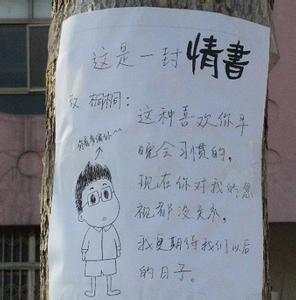 这是一封情書
桐桐：
这种喜欢你早
晚会习惯的，
现在你对我的忽
视都没关系，
我更期待我们以后
的日子。